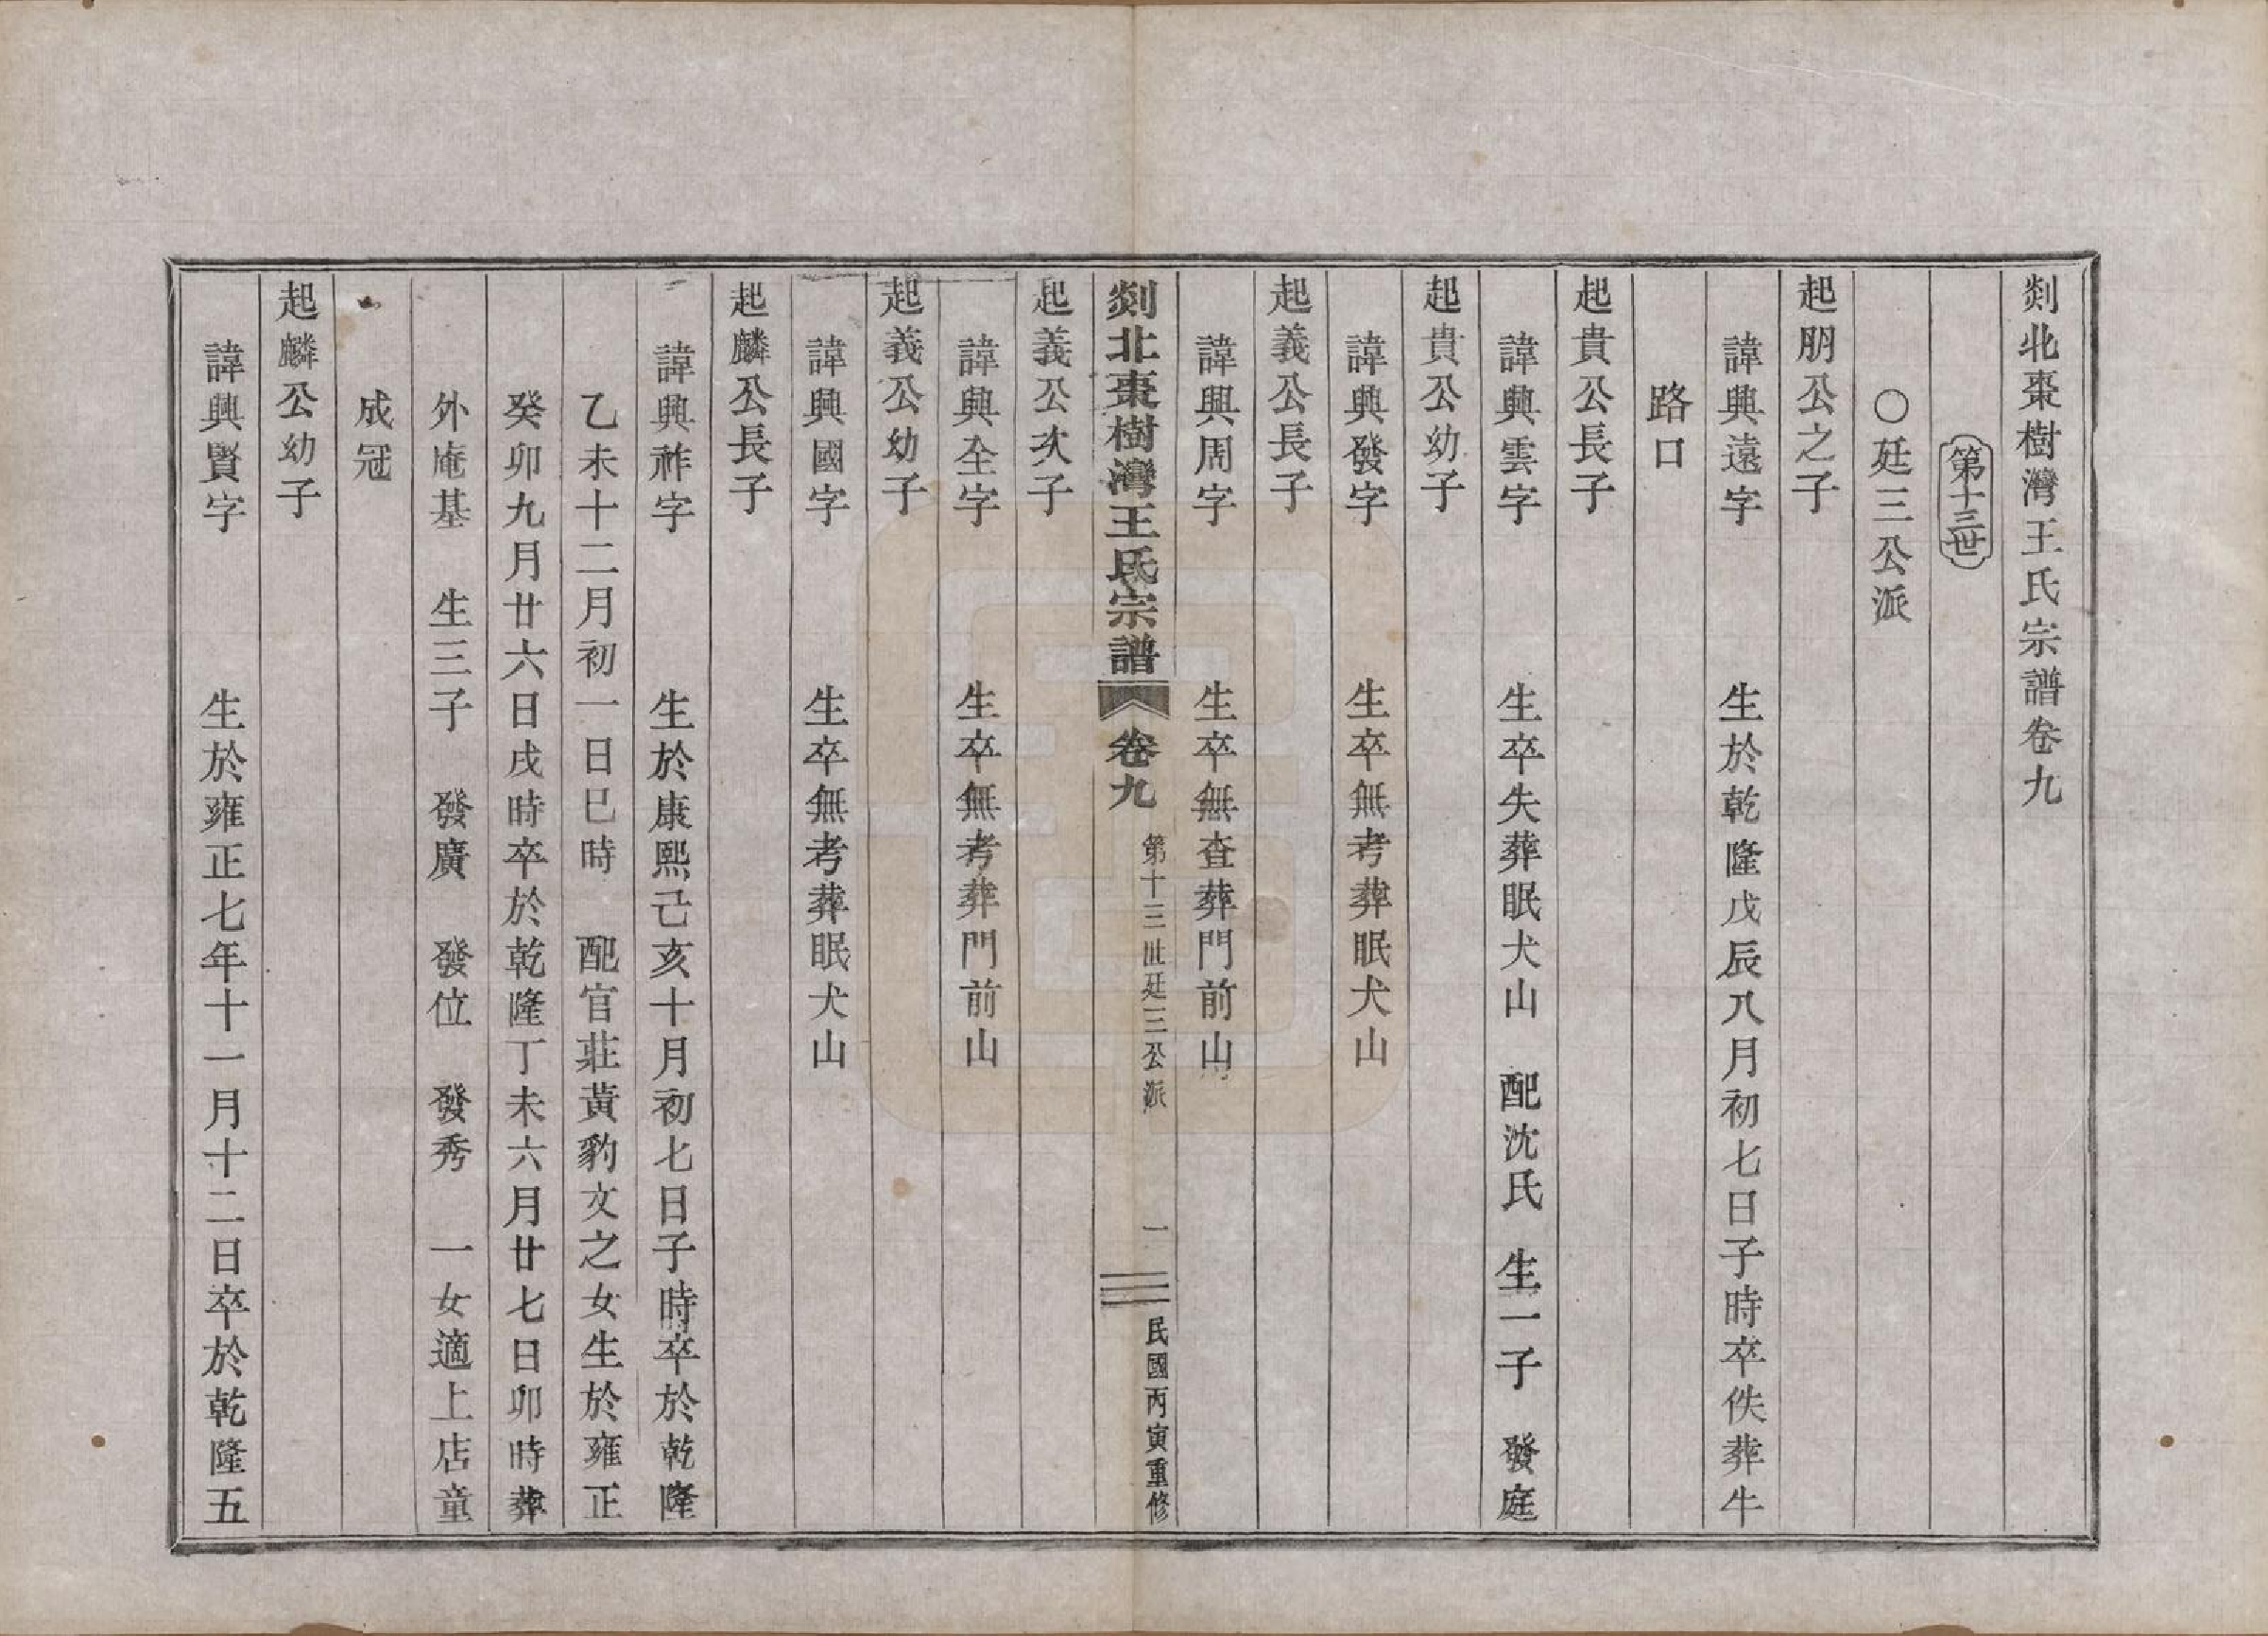 剡北棗樹灣王氏宗譜卷九
第十三世
○廷三公派
起朋公之子
諱興遠字 生於乾隆戊辰八月初七日子時卒佚葬牛
路口
起貴公長子
諱興雲字 生卒失葬眠犬山 配沈氏 生一子 發庭
起貴公幼子
諱興發字 生卒無考葬眠犬山
起義公長子
諱興周字 生卒無查葬門前山
剡北棗樹灣王氏宗譜 卷九 第十三世廷三公派 一 民國丙寅重修
起義公次子
諱興全字 生卒無考葬門前山
起義公幼子
諱興國字 生卒無考葬眠犬山
起麟公長子
諱興祚字 生於康熙己亥十月初七日子時卒於乾隆
乙未十二月初一日巳時 配官莊黃豹文之女生於雍正
癸卯九月廿六日戌時卒於乾隆丁未六月廿七日卯時葬
外庵基 生三子 發廣 發位 發秀 一女適上店童
成冠
起麟公幼子
諱興賢字 生於雍正七年十一月十二日卒於乾隆五